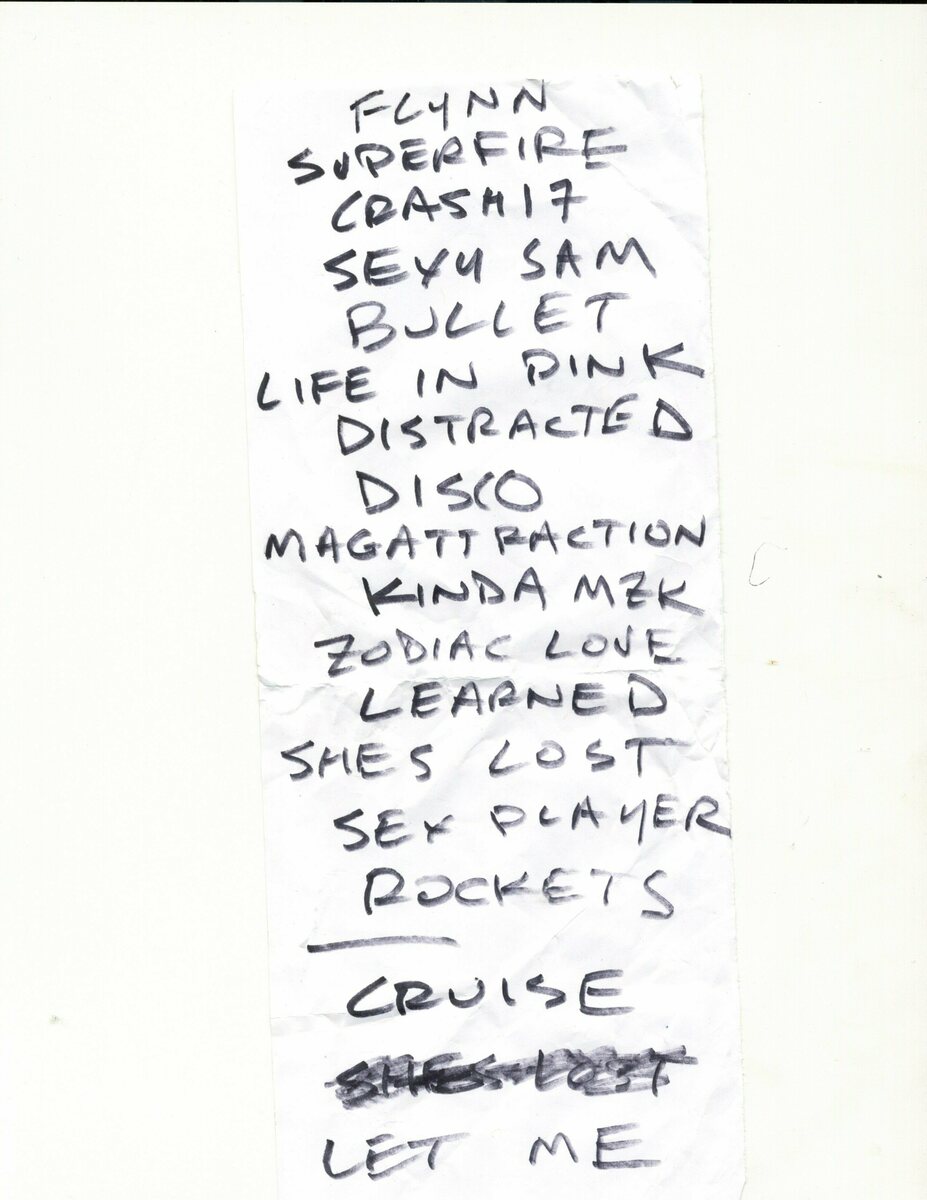 FLYNN
SUPERFIRE
CRASH17
SEXY SAM
BULLET
LIFE IN PINK
DISTRACTED
DISCO
MAGATTRACTION
KINDA MZK
ZODIAC LOVE
LEARNED
SHES LOST
SEX PLAYER
ROCKETS
CRUISE
SHES LOST
LET ME